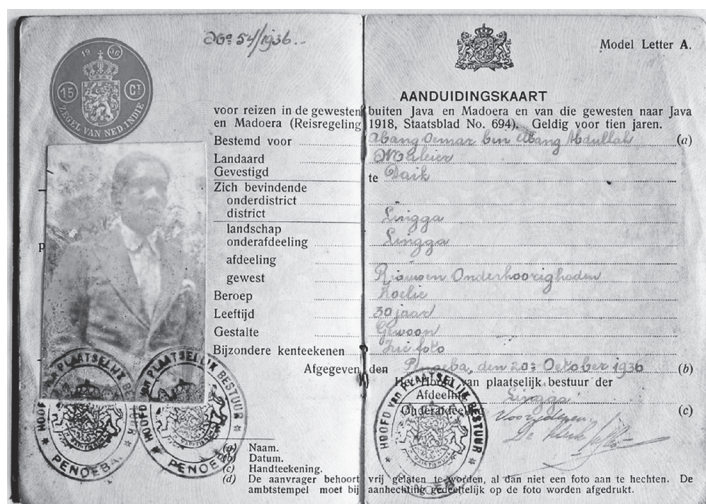 No 54/1936.
19 36
15 CT
ZEGEL VAN NED. INDIE
Model Letter A.
AANDUIDINGSKAART
voor reizen in de gewesten buiten Java en Madoera en van die gewesten naar Java
en Madoera (Reisregeling 1918, Staatsblad No. 694). Geldig voor tien jaren.
Bestemd voor Abang Oemar bin Abang Abdullah (a)
Landaard Maleier
Gevestigd te Daik
Zich bevindende
onderdistrict
district Lingga
landschap Lingga
onderafdeeling
afdeeling
gewest Riouw en Onderhoorigheden
Beroep Koelie
Leeftijd 30 jaar
Gestalte Gewoon
Bijzondere kenteekenen Zie foto
Afgegeven den Penoeba, den 20 October 1936 (b)
Het Hoofd van plaatselijk bestuur der
Afdeeling Lingga
Onderafdeeling (c)
HOOFD VAN PLAATSELIJK BESTUUR
PENOEBA
HOOFD VAN PLAATSELIJK BESTUUR
PENOEBA
HOOFD VAN PLAATSELIJK BESTUUR
(a) Naam.
(b) Datum.
(c) Handteekening.
(d) De aanvrager behoort vrij gelaten te worden, al dan niet een foto aan te hechten. De
ambtstempel moet bij aanhechting gedeeltelijk op de foto worden afgedrukt.